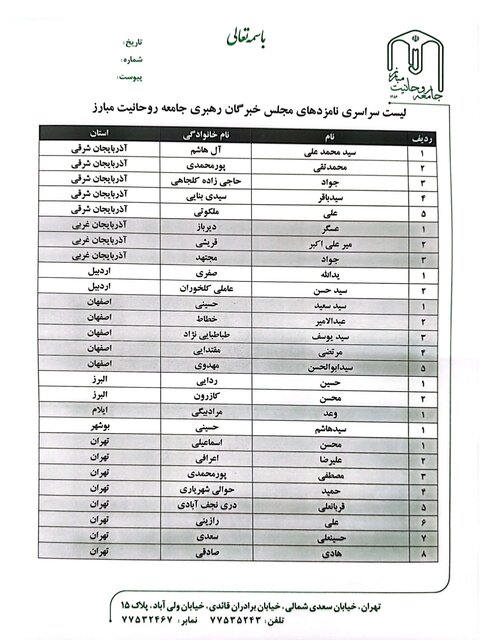 باسمه تعالی
تاریخ:
شماره:
پیوست:
جامعه روحانیت مبارز
لیست سراسری نامزدهای مجلس خبرگان رهبری جامعه روحانیت مبارز
ردیف نام نام خانوادگی استان
۱ سید محمد علی آل هاشم آذربایجان شرقی
۲ محمدتقی پورمحمدی آذربایجان شرقی
۳ جواد حاجی زاده کلجاهی آذربایجان شرقی
۴ سیدباقر سیدی بنابی آذربایجان شرقی
۵ علی ملکوتی آذربایجان شرقی
۱ عسگر دیرباز آذربایجان غربی
۲ میر علی اکبر قریشی آذربایجان غربی
۳ جواد مجتهد آذربایجان غربی
۱ یدالله صفری اردبیل
۲ سید حسن عاملی کلخوران اردبیل
۱ سید سعید حسینی اصفهان
۲ عبدالامیر خطاط اصفهان
۳ سید یوسف طباطبایی نژاد اصفهان
۴ مرتضی مقتدایی اصفهان
۵ سیدابوالحسن مهدوی اصفهان
۱ حسین ردایی البرز
۲ محسن کازرون البرز
۱ وعد مرادبیگی ایلام
۱ سیدهاشم حسینی بوشهر
۱ محسن اسماعیلی تهران
۲ علیرضا اعرافی تهران
۳ مصطفی پورمحمدی تهران
۴ حمید حوالی شهریاری تهران
۵ قربانعلی دری نجف آبادی تهران
۶ علی رازینی تهران
۷ حسینعلی سعدی تهران
۸ هادی صادقی تهران
تهران، خیابان سعدی شمالی، خیابان برادران قائدی، خیابان ولی آباد، پلاک ۱۵
تلفن: ۷۷۵۳۵۲۴۳ نمابر: ۷۷۵۳۲۴۶۷